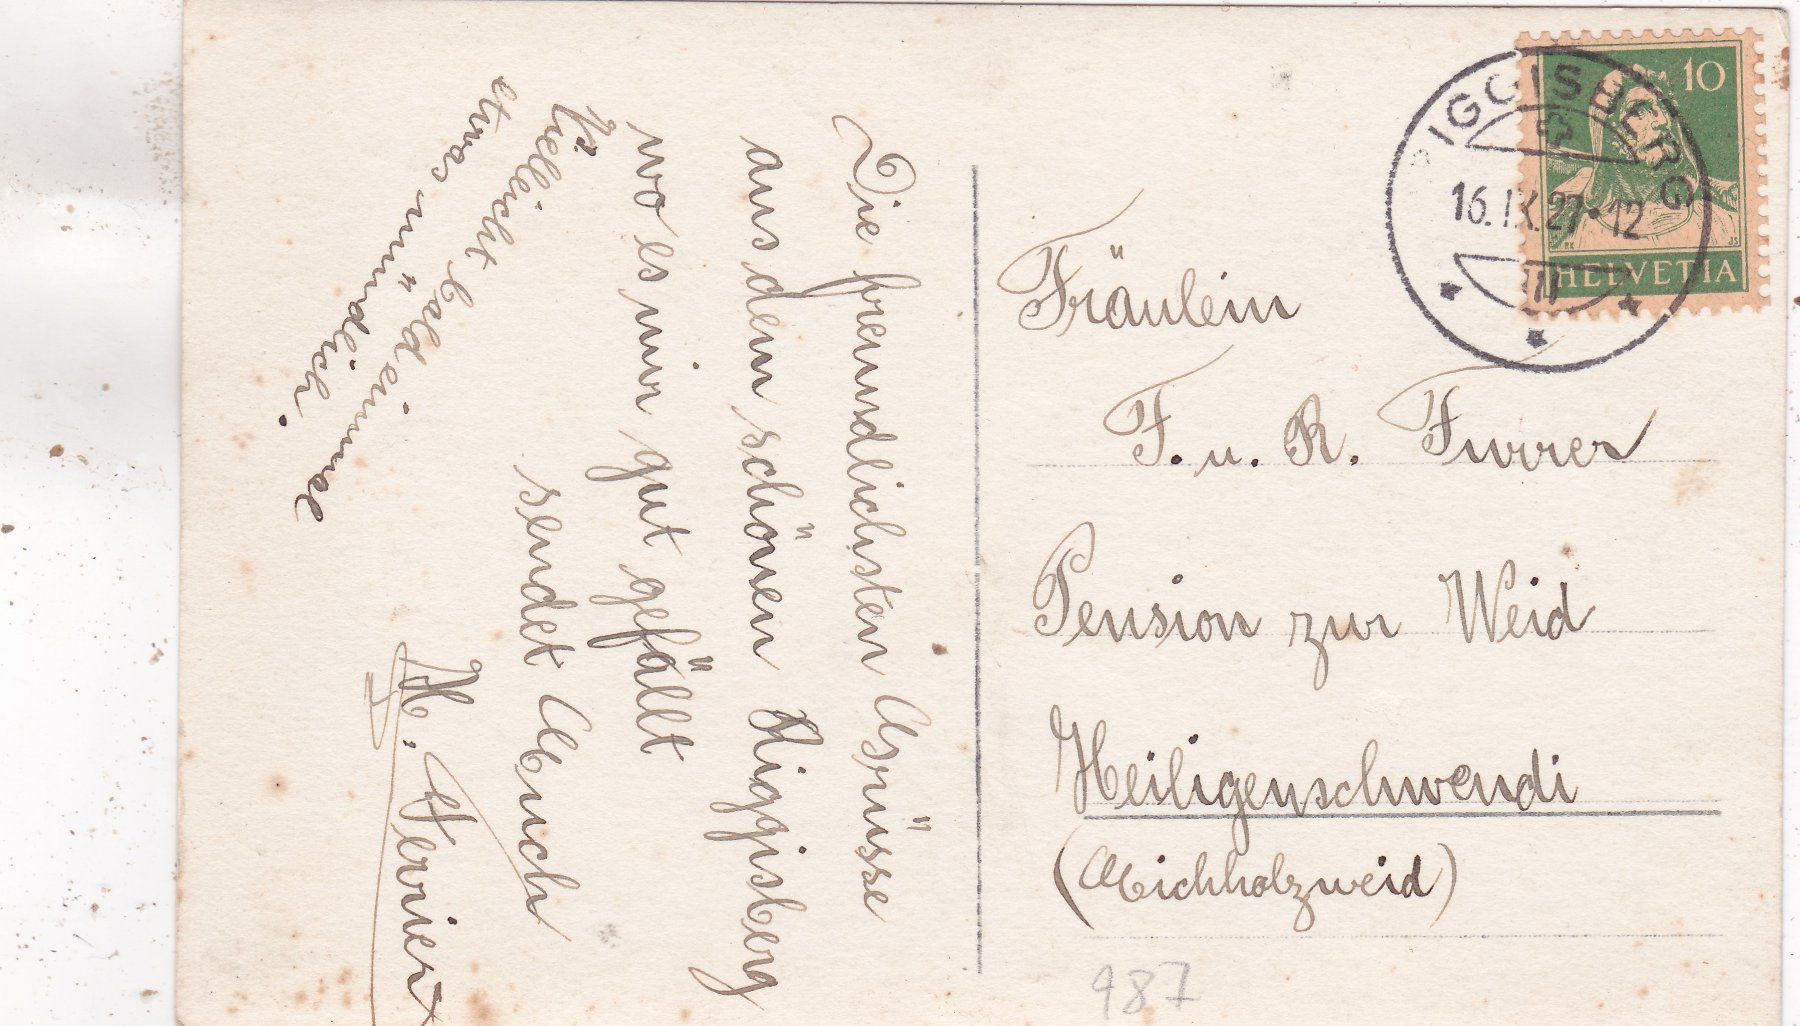 Die freundlichsten Grüsse
aus dem schönen Riggisberg
wo es mir gut gefällt
sendet Euch
Vielleicht bald einmal
etwas mündlich.
RIGGISBERG
16.IX.27·12
10
HELVETIA
Fräulein
F. u. R. Furrer
Pension zur Weid
Heiligenschwendi
(Eichholzweid)
987